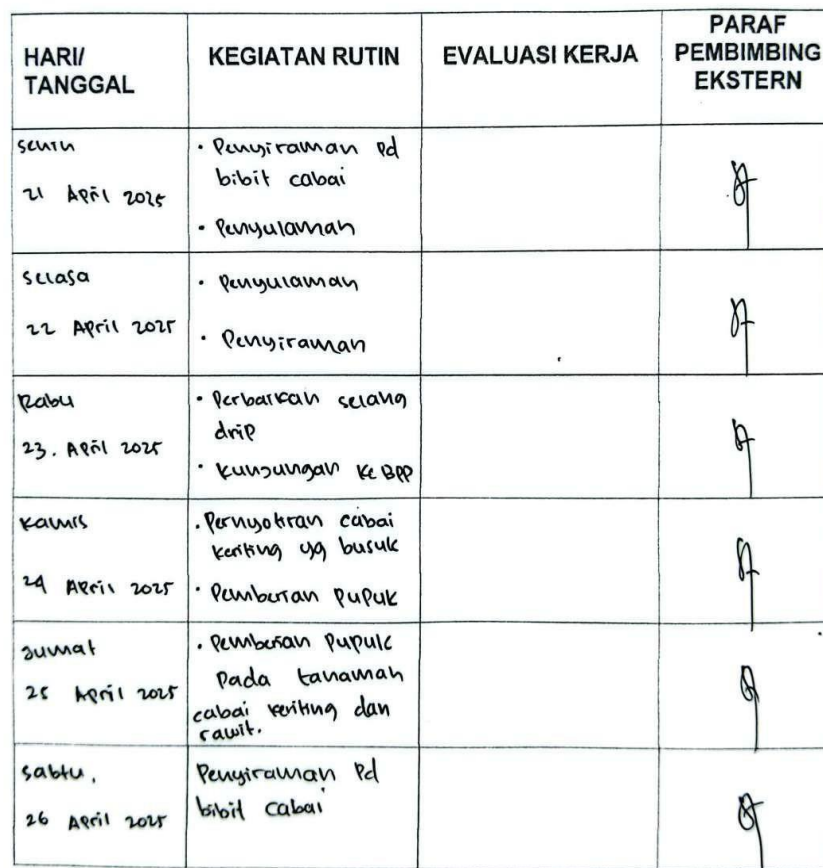 HARI/
TANGGAL
KEGIATAN RUTIN
EVALUASI KERJA
PARAF
PEMBIMBING
EKSTERN
Senin
21 April 2025
• Penyiraman pd
bibit cabai
• Penyulaman
Selasa
22 April 2025
• Penyulaman
• Penyiraman
Rabu
23. April 2025
• Perbaikan selang
drip
• Kunjungan ke BPP
Kamis
24 April 2025
• Penyortiran cabai
keriting yg busuk
• Pemberian pupuk
Jumat
25 April 2025
• Pemberian pupuk
pada tanaman
cabai keriting dan
rawit.
Sabtu,
26 April 2025
Penyiraman pd
bibit cabai